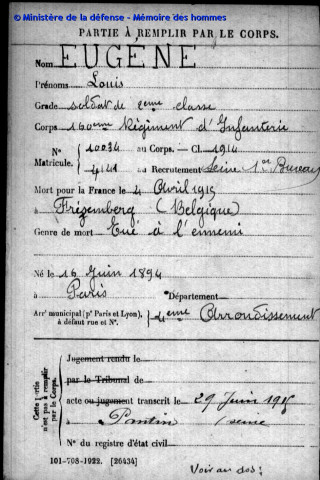 © Ministère de la défense - Mémoire des hommes
PARTIE À REMPLIR PAR LE CORPS.
Nom EUGÈNE
Prénoms Louis
Grade soldat de 2eme classe
Corps 160eme Régiment d'Infanterie
N° 10034 au Corps. — Cl. 1914
Matricule. 4141 au Recrutement Seine 1er Bureau
Mort pour la France le 4 Avril 1915
à Frezemberg (Belgique)
Genre de mort Tué à l'ennemi
Né le 16 Juin 1894
à Paris Département
Arrt municipal (pr Paris et Lyon), à défaut rue et N°. 4eme Arrondissement
Cette partie n'est pas à remplir par le Corps.
Jugement rendu le
par le Tribunal de
acte ou jugement transcrit le 29 Juin 1915
à Pantin (seine
N° du registre d'état civil
101-708-1922. [26434]
Voir au dos: